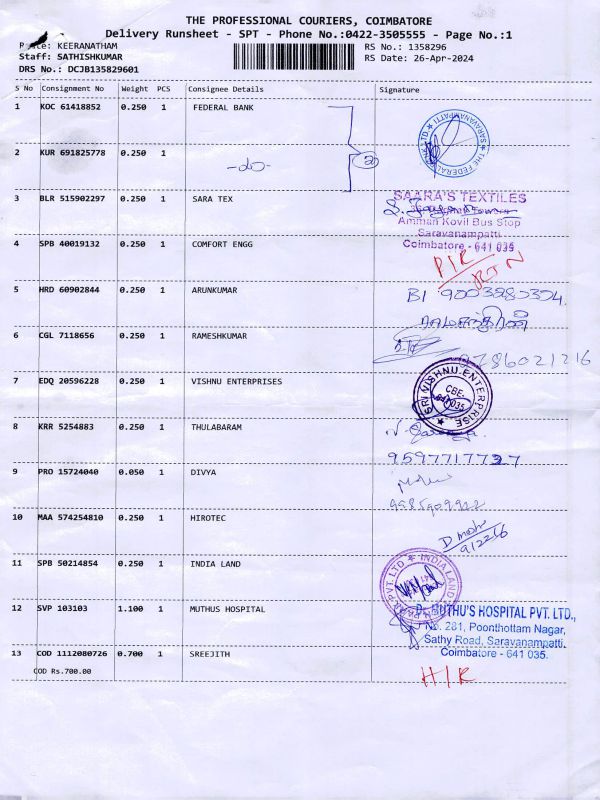 THE PROFESSIONAL COURIERS, COIMBATORE
Delivery Runsheet - SPT - Phone No.:0422-3505555 - Page No.:1
KEERANATHAM
RS No.: 1358296
Staff: SATHISHKUMAR
RS Date: 26-Apr-2024
DRS No.: DCJB135829601
S No Consignment No Weight PCS Consignee Details Signature
1 KOC 61418852 0.250 1 FEDERAL BANK
THE FEDERAL
SARAVANAMPATTI
2 KUR 691825778 0.250 1
-do- 20
3 BLR 515902297 0.250 1 SARA TEX
SAARA'S TEXTILES
Amman Kovil Bus Stop
Saravanampatti
Coimbatore - 641 035
4 SPB 40019132 0.250 1 COMFORT ENGG
P/R
RTN
5 HRD 60902844 0.250 1 ARUNKUMAR
6 CGL 7118656 0.250 1 RAMESHKUMAR
9786021216
7 EDQ 20596228 0.250 1 VISHNU ENTERPRISES
SRI VISHNU ENTERPRISE
CBE-
641 035
8 KRR 5254883 0.250 1 THULABARAM
9597717727
9 PRO 15724040 0.050 1 DIVYA
10 MAA 574254810 0.250 1 HIROTEC
11 SPB 50214854 0.250 1 INDIA LAND
INDIA LAND
PARK PVT LTD
12 SVP 103103 1.100 1 MUTHUS HOSPITAL
Dr. MUTHU'S HOSPITAL PVT. LTD.,
No. 281, Poonthottam Nagar,
Sathy Road, Saravanampatti,
Coimbatore - 641 035.
13 COD 1112080726 0.700 1 SREEJITH
COD Rs.700.00
H/R